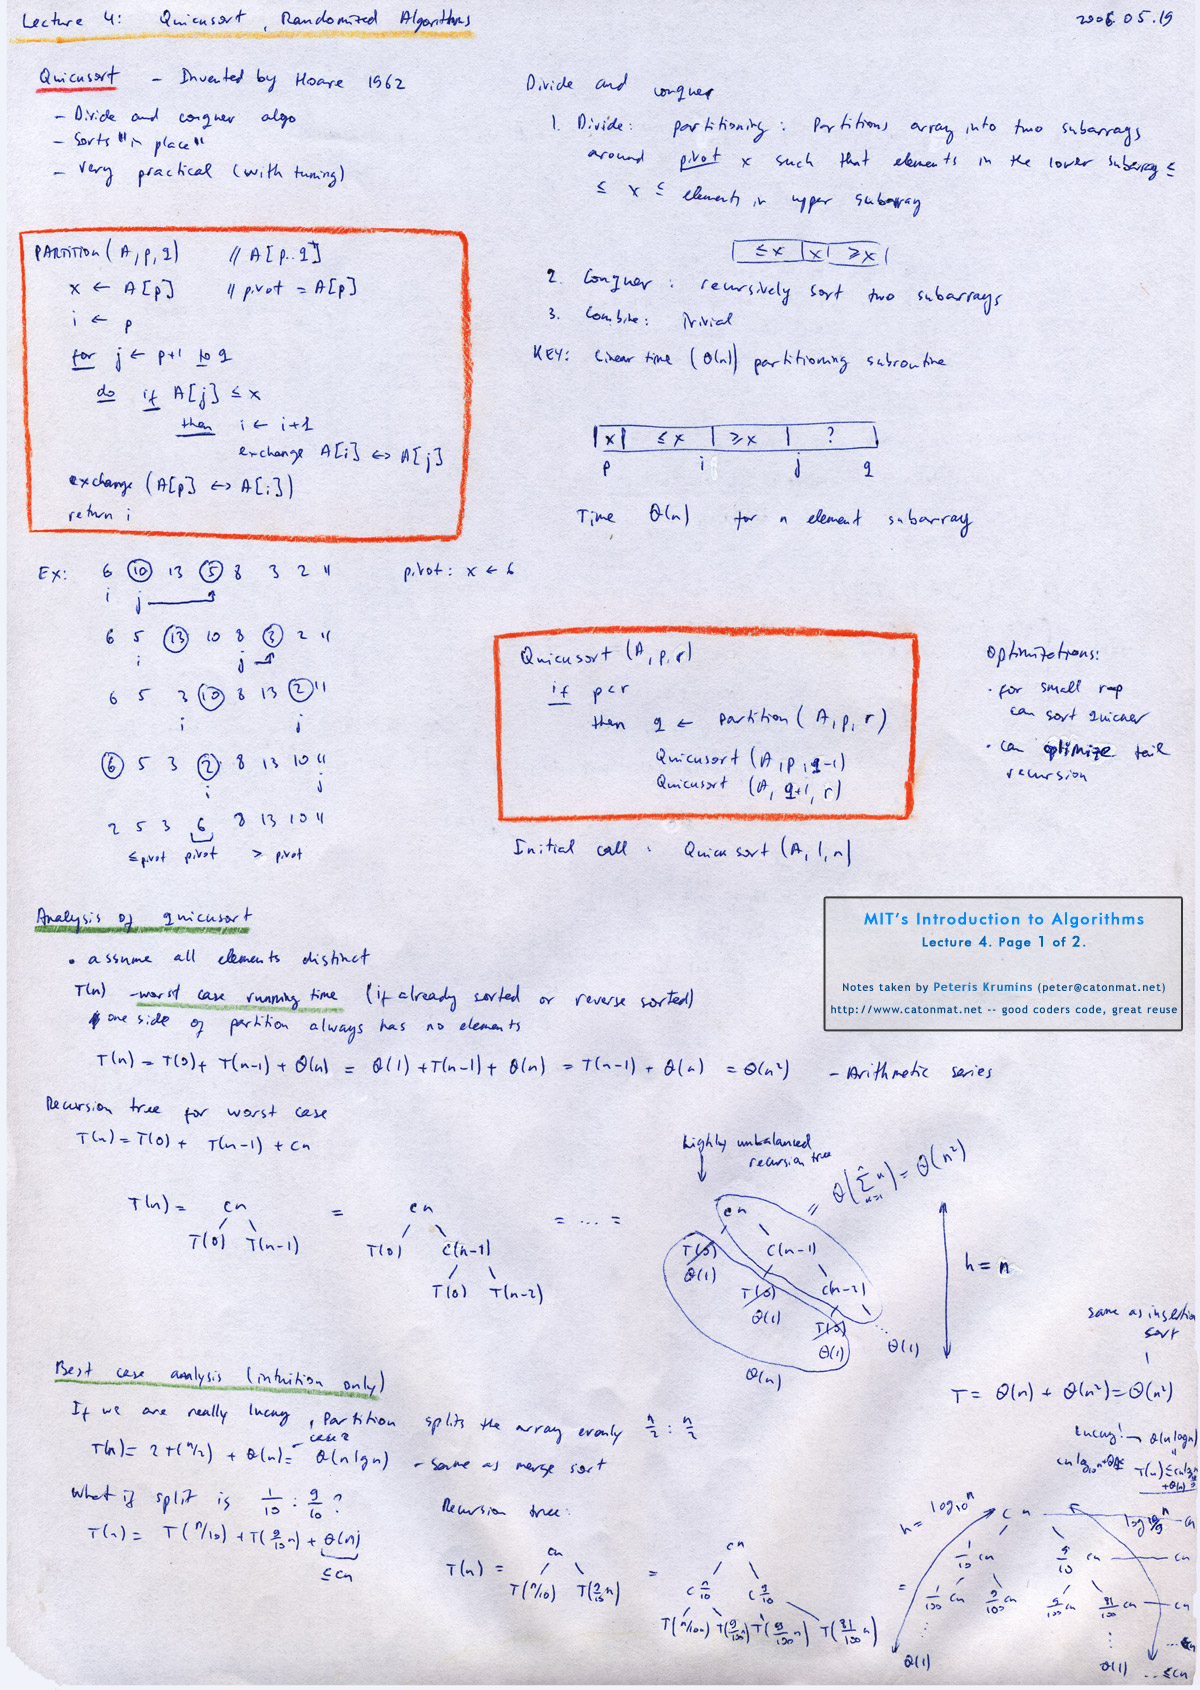 Lecture 4: Quicksort, Randomized Algorithms
2006.05.19
Quicksort - Invented by Hoare 1962
- Divide and conquer algo
- Sorts "in place"
- Very practical (with tuning)
Divide and conquer
1. Divide: partitioning: Partitions array into two subarrays
around pivot x such that elements in the lower subarray ≤
≤ x ≤ elements in upper subarray
≤x | x | ≥x
2. Conquer: recursively sort two subarrays
3. Combine: Trivial
KEY: Linear time (Θ(n)) partitioning subroutine
PARTITION(A,p,q) // A[p..q]
x ← A[p] // pivot = A[p]
i ← p
for j ← p+1 to q
do if A[j] ≤ x
then i ← i+1
exchange A[i] ↔ A[j]
exchange (A[p] ↔ A[i])
return i
x | ≤x | ≥x | ?
p i j q
Time Θ(n) for n element subarray
Ex: 6 10 13 5 8 3 2 11 pivot: x ← 6
i j
6 5 13 10 8 3 2 11
i j
6 5 3 10 8 13 2 11
i j
6 5 3 2 8 13 10 11
i j
2 5 3 6 8 13 10 11
≤pivot pivot > pivot
Quicksort (A,p,r)
if p<r
then q ← Partition(A,p,r)
Quicksort (A,p,q-1)
Quicksort (A,q+1,r)
Initial call: Quicksort (A,1,n)
Optimizations:
· for small
can sort quicker
· can optimize tail
recursion
Analysis of quicksort
• assume all elements distinct
T(n) - worst case running time (if already sorted or reverse sorted)
one side of partition always has no elements
T(n) = T(0) + T(n-1) + Θ(n) = Θ(1) + T(n-1) + Θ(n) = T(n-1) + Θ(n) = Θ(n²) - Arithmetic series
MIT's Introduction to Algorithms
Lecture 4. Page 1 of 2.
Notes taken by Peteris Krumins (peter@catonmat.net)
http://www.catonmat.net -- good coders code, great reuse
Recursion tree for worst case
T(n) = T(0) + T(n-1) + cn
T(n) = cn = cn = ... =
T(0) T(n-1) T(0) c(n-1)
T(0) T(n-2)
highly unbalanced
recursion tree
= Θ(Σ k) = Θ(n²)
cn
T(0) c(n-1)
Θ(1)
T(0) c(n-2)
Θ(1)
T(0)
Θ(1) ... Θ(1)
Θ(n)
h = n
same as insertion
sort
T = Θ(n) + Θ(n²) = Θ(n²)
Best case analysis (intuition only)
If we are really lucky, Partition splits the array evenly n/2 : n/2
T(n) = 2T(n/2) + Θ(n) = Θ(n lg n) - same as merge sort
case 2
What if split is 1/10 : 9/10 ?
T(n) = T(n/10) + T(9/10 n) + Θ(n)
≤cn
Recursion tree:
T(n) = cn = cn =
T(n/10) T(9/10 n) c n/10 c 9/10
T(n/100) T(9/100 n) T(9/100 n) T(81/100 n)
Lucky! → Θ(n log n)
h = log10 n
cn
log10/9 n cn
1/10 cn 9/10 cn cn
1/100 cn 9/100 cn 9/100 cn 81/100 cn cn
Θ(1) Θ(1) ... ≤cn